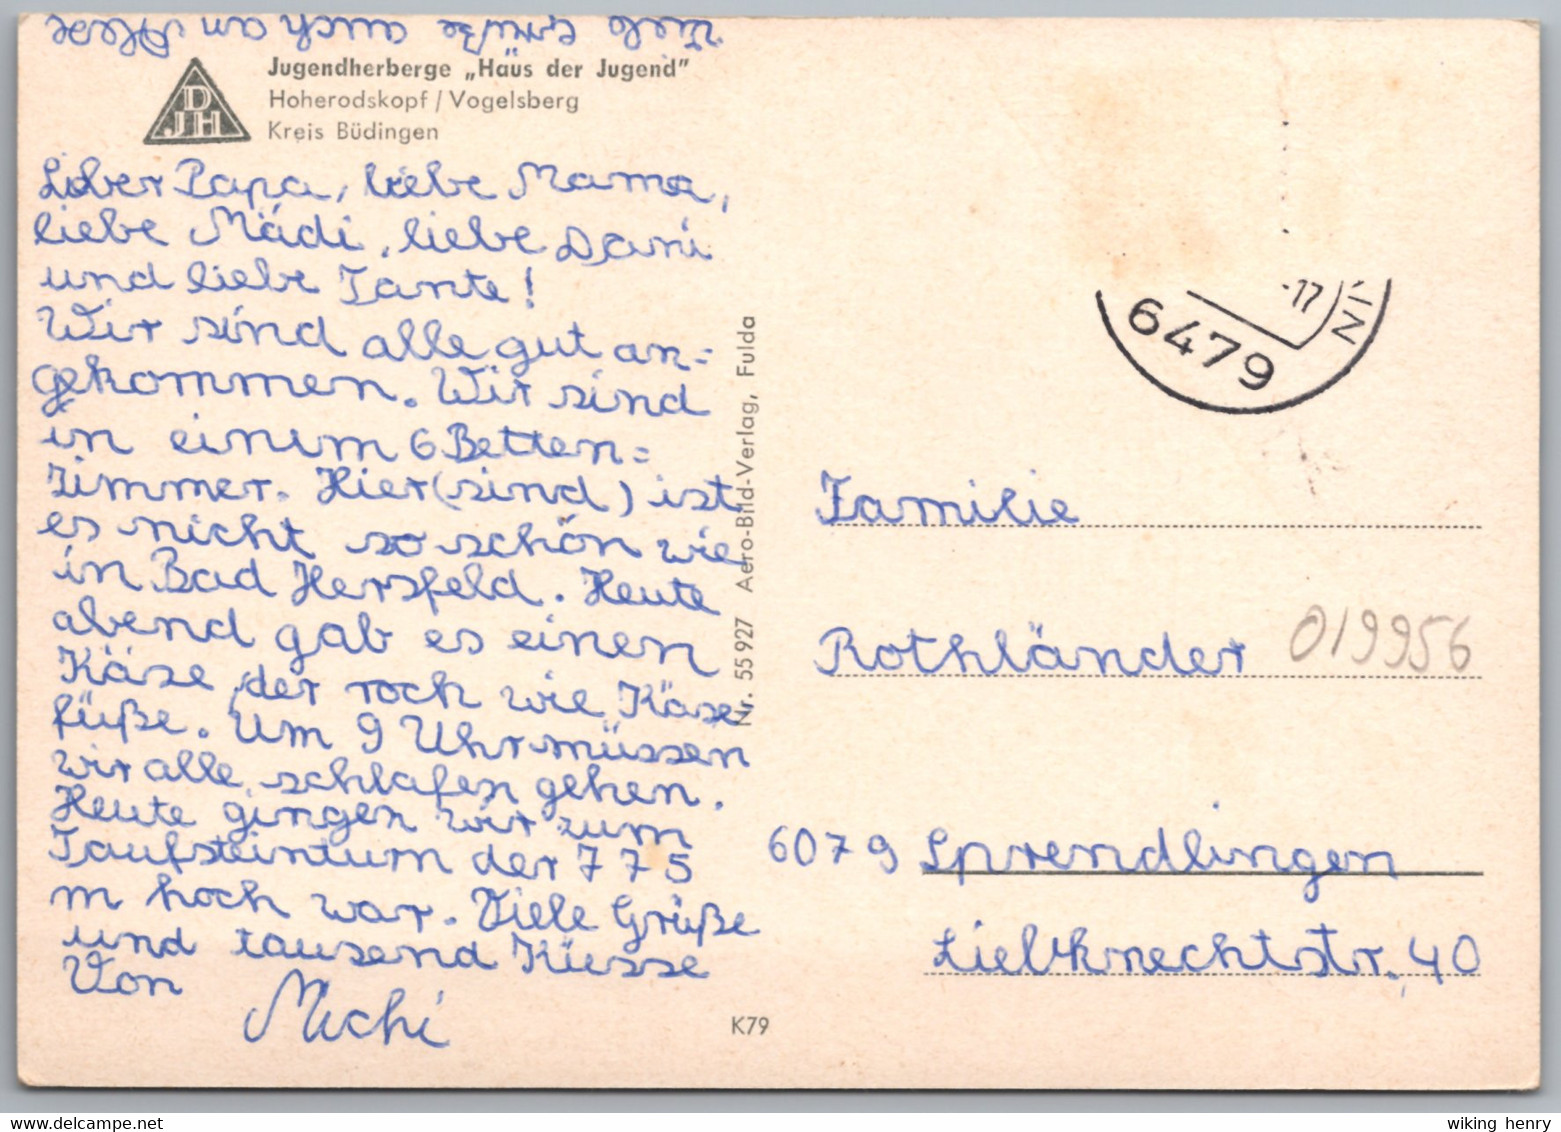 Viele Grüße auch an
Jugendherberge „Haus der Jugend"
Hoherodskopf / Vogelsberg
Kreis Büdingen
DJH
Lieber Papa, liebe Mama,
liebe Mädi, liebe Dani
und liebe Tante!
Wir sind alle gut an=
gekommen. Wir sind
in einem 6 Betten=
zimmer. Hier (sind) ist
es nicht so schön wie
in Bad Hersfeld. Heute
abend gab es einen
Käse, der roch wie Käse
füße. Um 9 Uhr müssen
wir alle schlafen gehen.
Heute gingen wir zum
Taufsteinturm der 775
m hoch war. Viele Grüße
und tausend Küsse
Von
Michi
Nr. 55 927 Aero-Bild-Verlag, Fulda
K79
-17
6479
Familie
Rothländer
019956
6079 Sprendlingen
Liebknechtstr. 40
wiking henry